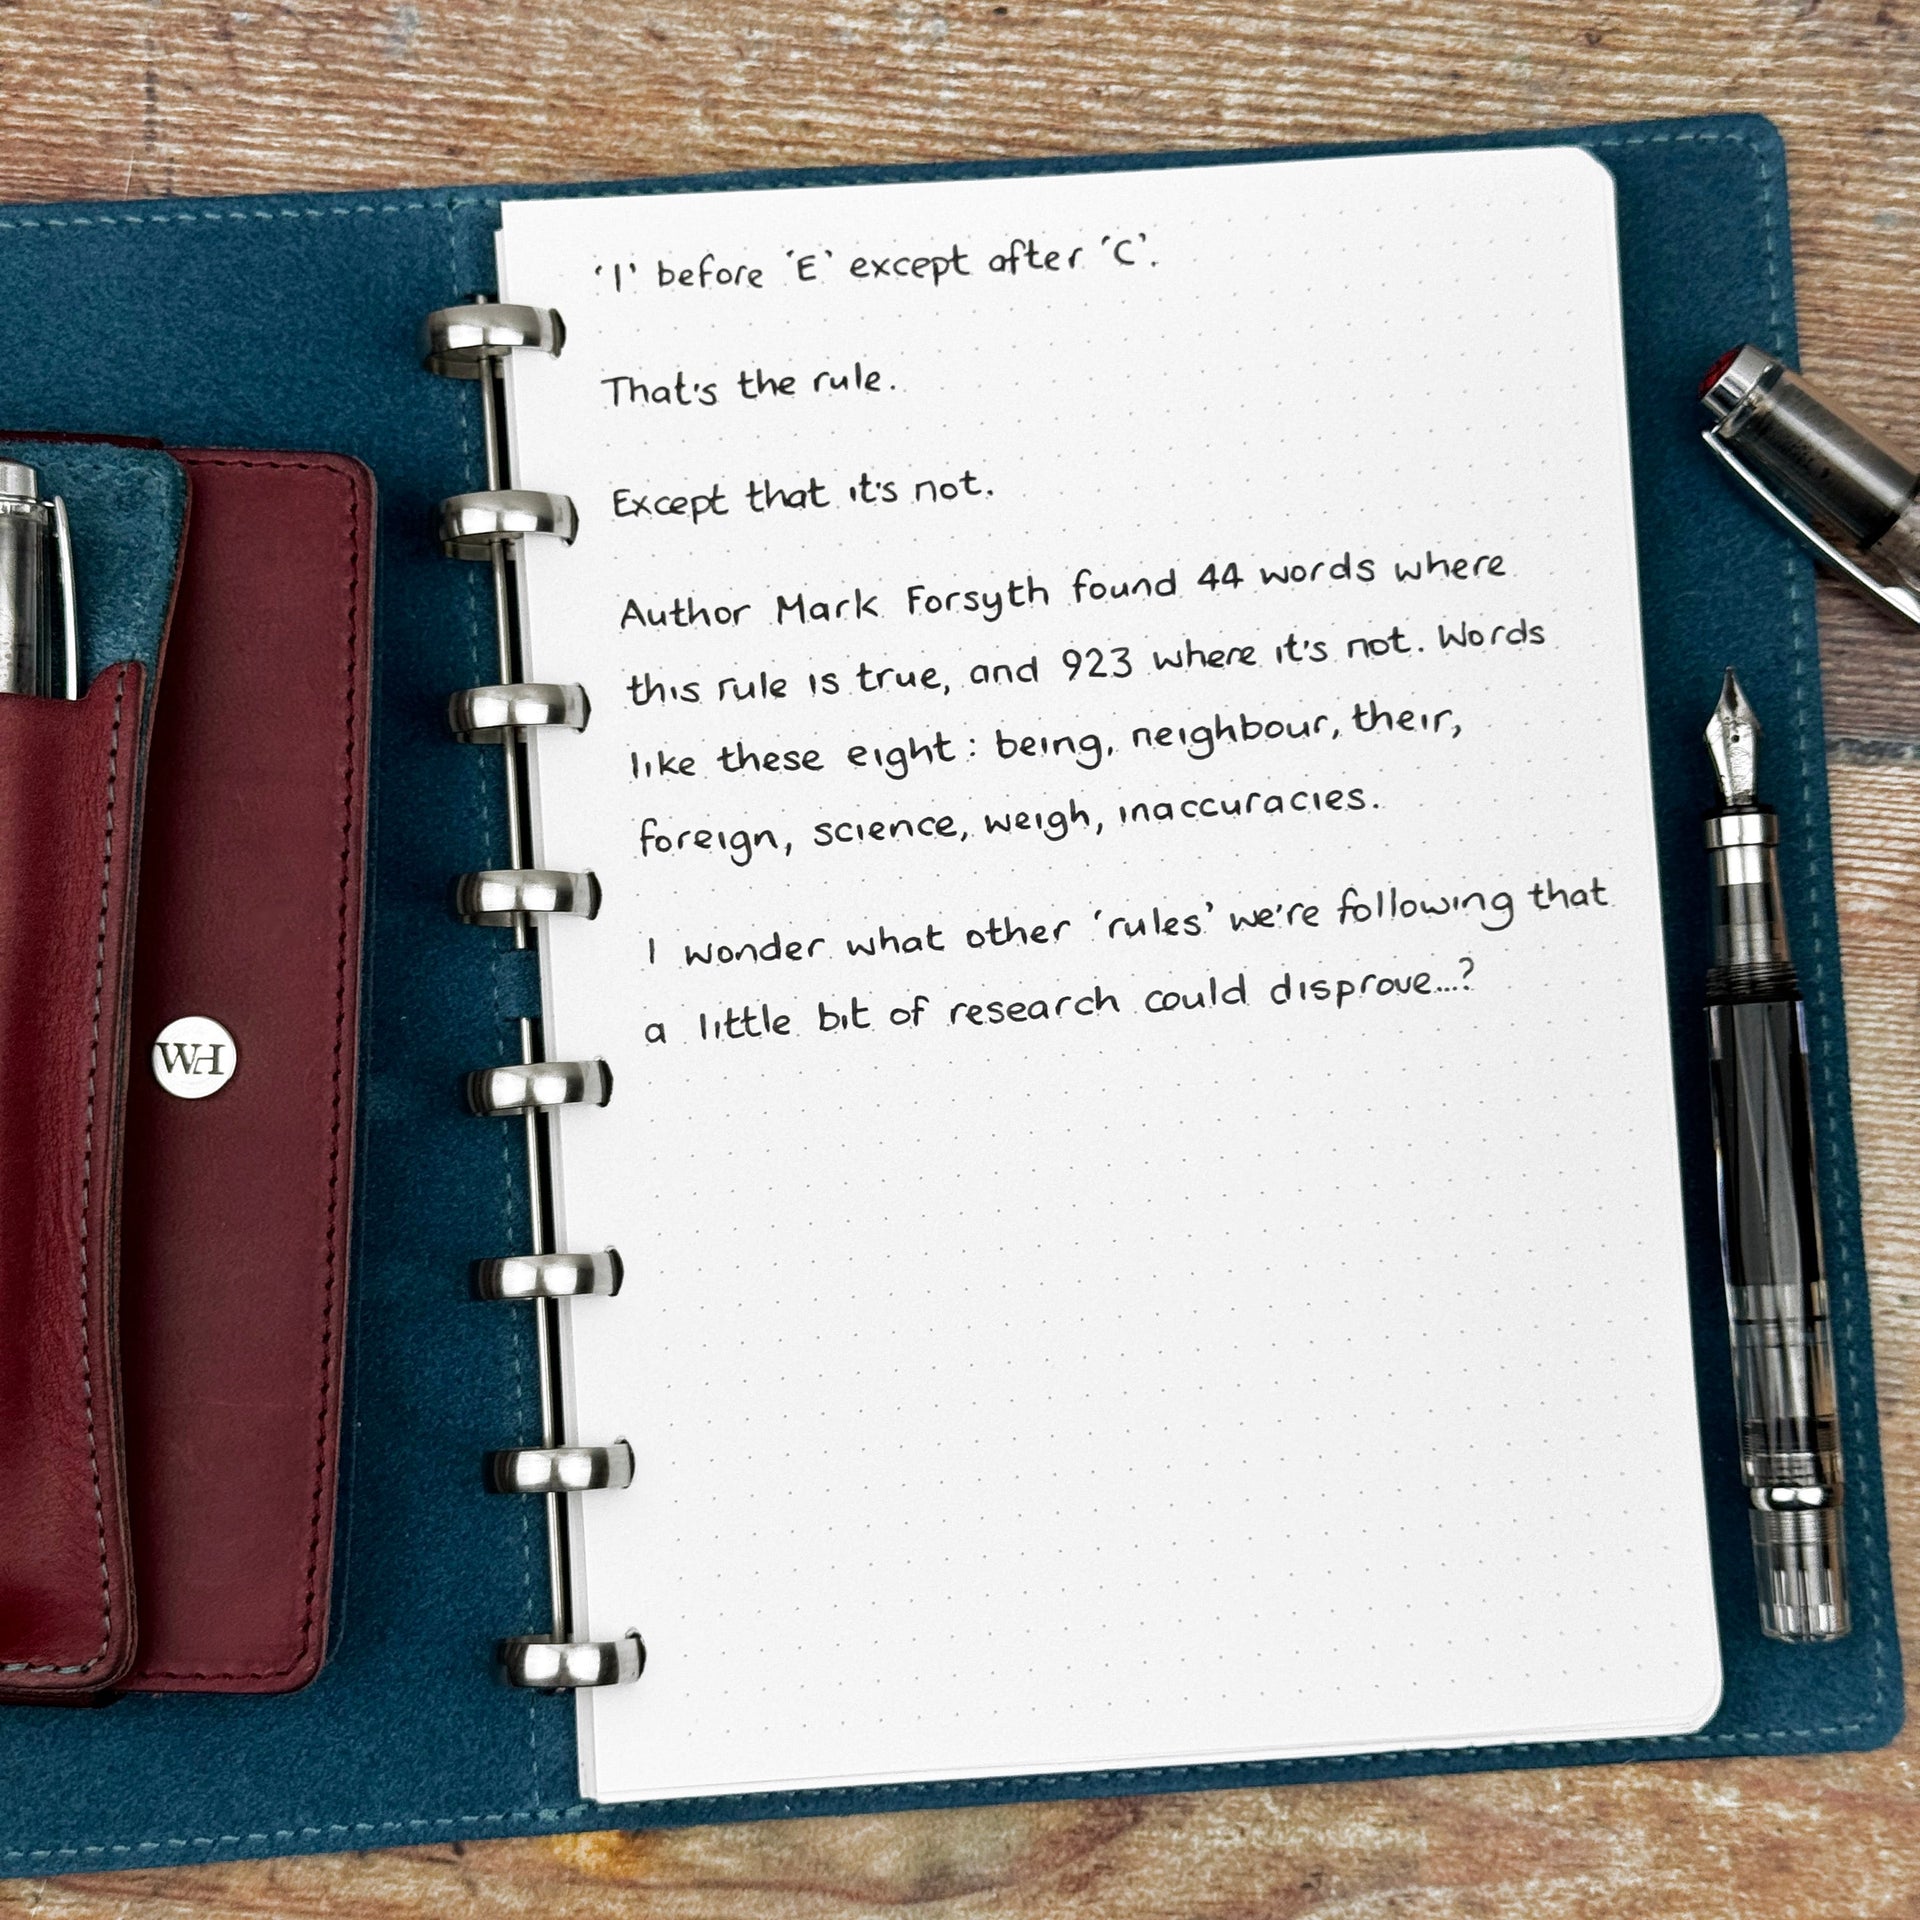 'I' before 'E' except after 'C'.
That's the rule.
Except that it's not.
Author Mark Forsyth found 44 words where
this rule is true, and 923 where it's not. Words
like these eight: being, neighbour, their,
foreign, science, weigh, inaccuracies.
I wonder what other 'rules' we're following that
a little bit of research could disprove...?
WH